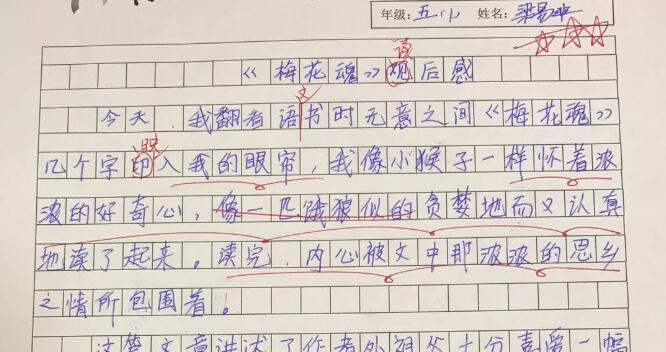 年级:五 姓名:
读
《梅花魂》观后感
文
今天,我翻看语书时无意之间《梅花魂》
映
几个字印入我的眼帘,我像小猴子一样怀着浓
浓的好奇心,像一匹饿狼似的贪婪地而又认真
地读了起来。读完,内心被文中那浓浓的思乡
之情所包围着。
这篇文章讲述了作者外祖父十分喜爱一幅